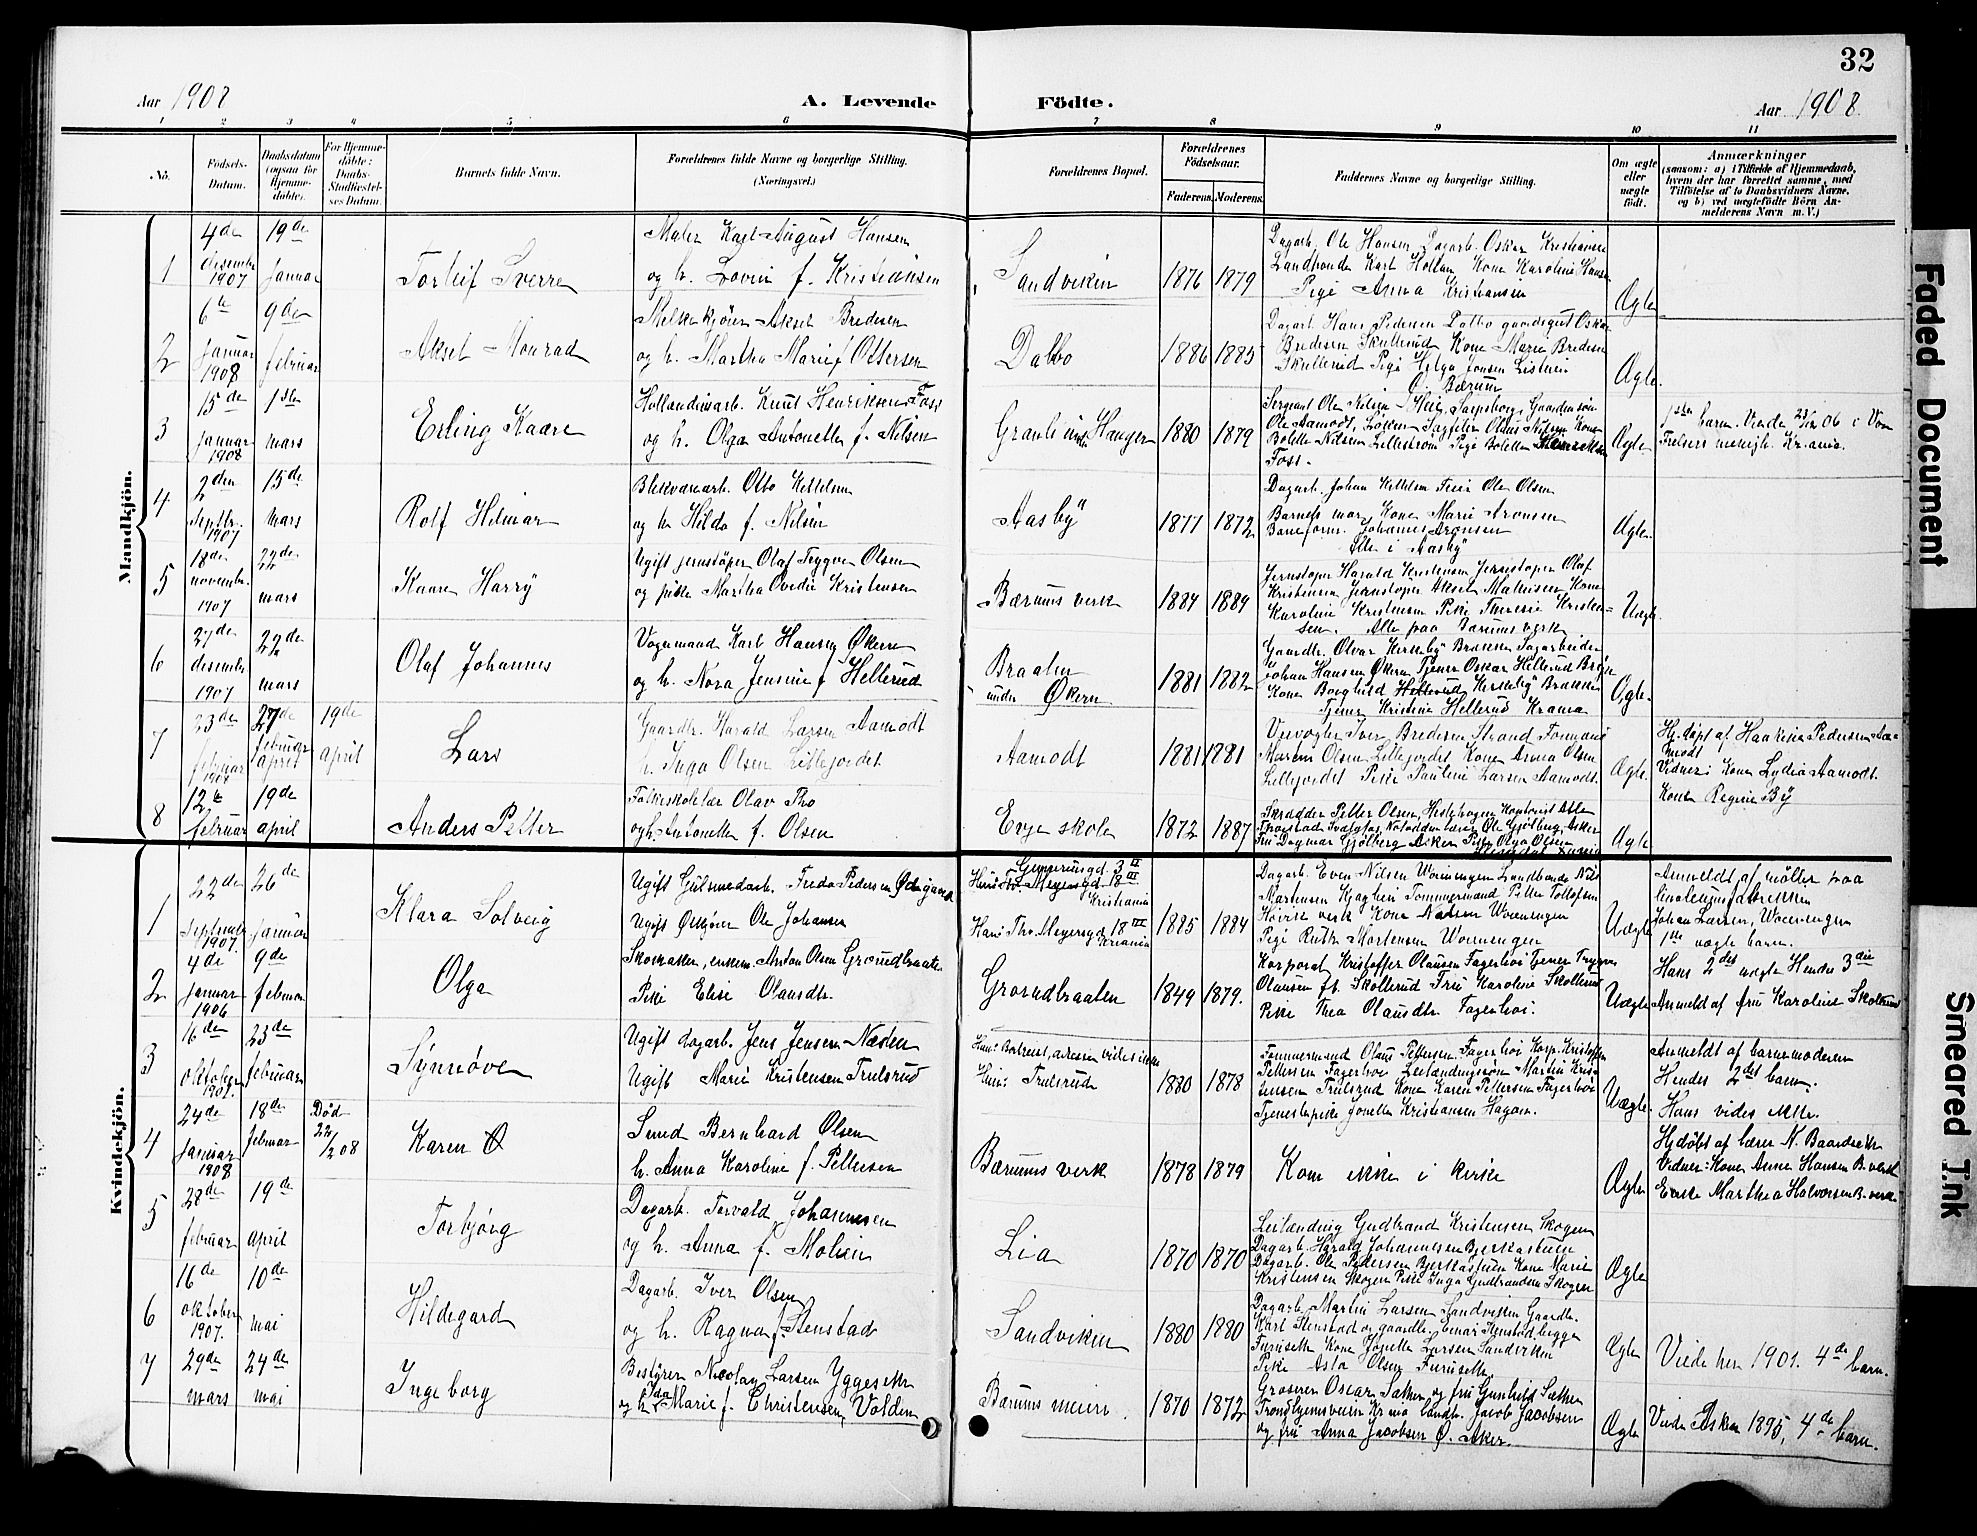 32
Aar 1908
A. Levende Födte.
Aar 1908.
1 2 3 4 5 6 7 8 9 10 11
No.
Födsels-Datum.
Daabsdatum (ogsaa for Hjemmedöbte).
For Hjemmedöbte: Daabs-Stadfæstelses Datum.
Barnets fulde Navn.
Forældrenes fulde Navne og borgerlige Stilling.
(Næringsvei.)
Forældrenes Bopæl.
Forældrenes Födselsaar.
Faderens. Moderens.
Faddernes Navne og borgerlige Stilling.
Om ægte eller uægte födt.
Anmærkninger
(saasom: a) i Tilfælde af Hjemmedaab, hvem der har forrettet samme, med Tilföielse af to Daabsvidners Navne, og b) ved uægtefödte Börn Anmelderens Navn m. V.)
Mandkjön.
1
4de desember 1907
19de januar
Torleif Sverre
Maler Karl August Hansen
og h. Lovin f. Kristiansen
Sandviken
1876 1879
Dagarb. Ole Hansen Dagarb. Oskar Kristiansen
Landhandler Karl Holtan Kone Karoline Hansen
Pige Anna Kristiansen
Ægte
2
6te januar 1908
9de februar
Aksel Monrad
Melkekjörer Aksel Bredesen
og h. Martha Marie f Ottersen
Dalbo
1886 1885
Dagarb. Hans Pedersen Dalbo gaardsgut Oskar
Bredesen Skullerud Kone Marie Bredesen
Skullerud Pige Helga Jonsen
Ö. Bærum
Ægte.
3
15de januar 1908
1ste mars
Erling Kaare
Hollandienarb. Knut Henriksen Foss
og h. Olga Antonette f. Nilsen
Granli under Hauger
1880 1879
Sergeant Ole Nilsen Sarpsborg, Gaardersön
Ole Aamodt, Kone
Bolette Nilsen Lilleström Pige Bolette Henriksen
Foss.
Ægte
1ste barn. Viede 23/12 06 i Vor
Frelsers menigh. Kr.ania.
4
2den septbr. 1907
15de mars
Rolf Hilmar
Blikvarearb. Otto Kittelsen
og h. Hilda f. Nilsen
Aasby
1877 1872
Dagarb. Johan Kittelsen Frue Ole Olsen
Barnets mor, Kone Marie Aronsen
Baneform. Johannes Aronsen
Alle i Aasby
Ægte.
5
18de novembr. 1907
22de mars
Kaare Harry
Ugift jernstöper Olaf Trygve Olsen
og pike Martha Ovedie Kristensen
Bærums verk
1884 1889
Jernstöper Harald Kristensen Jernstöper Olaf
Kristensen Jernstöper Aksel Mathisen Kone
Karoline Kristensen Pike Therese Kristen-
sen. Alle paa Bærums verk
Uægte.
6
27de desember 1907
22de mars
Olaf Johannes
Vognmand Karl Hansen Økern
og h. Nora Jensine f Hellerud
Braaten
under Økern
1881 1882
Gaardbr. Olvar Kirkeby Brakken Sagarbeider
Johan Hansen Økern Tjener Oskar Hellerud
Kone Borghild Hellerud Kirkeby Brakken
Tjener Kristine Hellerud Kr.ania
Ægte.
7
23de februar 1908
27de februar april
19de april
Lars
Gaardbr. Harald Larsen Aamodt
h. Inga Olsen Lillejordet
Aamodt
1881 1881
Iver Bredesen Strand Formand
Martin Olsen Lillejordet Kone Anna Olsen
Lillejordet Pike Pauline Larsen Aamodt.
Ægte
Hj.döpt af Haakine Pedersen Aa-
modt
Vidner: Kone Lydia Aamodt.
Kone Regine By
8
12te februar
19de april
Anders Petter
Folkeskolelær Olav Tho
og h. Antonette f. Olsen
Evje skole
1872 1887
Skrædder Petter Olsen, Kontorist
Notodden lærer Ole Gjölberg, Asker
Fru Dagmar Gjölberg Asker Pike Olga Olsen
Ægte
Kvindekjön.
1
22de septembr 1907.
26de januar
Klara Solveig
Ugift Gulsmedarb. Frida Pedersen Ødegaard
Ugift Ølkjörer Ole Johansen
Kristiania
Hans Tho. Meyersgd. 18 III
Kr.iania
1885 1884
Dagarb. Even Nilsen Woiningen Landhandl. Nils
Martensen Tommermand Petter Tollefsen
verk Kone Nilsen Woeningen
Pige Ruth Mortensen Woeningen
Uægte
Anmeldt af möller paa
linoleumsfabrikken
Johan Larsen, Woeningen
1ste uægte barn.
2
4de januar 1906
9de februar
Olga
Skomaker, enkem. Anton Olsen Grandbraaten
Pike Elise Olausdtr.
Grandbraaten
1849 1879.
Korporal Kristoffer Olausen Fagerhöi Tjener Trygve
Olausen ft. Skollerud Fru Karoline Skollerud
Pike Thea Olausdtr. Fagerhöi.
Uægte
Hans 2det uægte Hendes 3die
Anmeld af fru Karoline Skollerud
3
16de oktober 1907.
23de februar
Synnöve
Ugift dagarb. Jens Jensen Næsten
Ugift Marie Kristensen Trulsrud
Hans Bortreist, adressen vides ikke
Hendes Trulsrud
1880 1878
Tommermand Olaus Pettersen Fagerhöi Korp. Kristoffer
Pettersen Fagerhöi Leilændingssön Martin Kris-
tensen Trulsrud Kone Karen Pettersen Fagerhöi
Tjenestepike Jonette Kristiansen Hagan.
Uægte.
Anmeldt af barnemoderen
Hendes 2det barn.
Hans vides ikke.
4
24de januar 1908
18de februar
Död 22/2 08
Karen
Smed Bernhard Olsen
h. Anna Karoline f. Pettersen
Bærums verk
1878 1879
Kom ikke i kirke
Ægte
Hj.döbt af lærer N. Baardseth
Vidner: Kone Anne Hansen B. verk
Enke Marthea Halvorsen B. verk
5
28de februar
19de april
Torbjörg
Dagarb. Torvald Johannessen
og h. Anna f. Molien
Lia
1870 1870
Leilænding Gudbrand Kristensen Skogen
Dagarb. Harald Johannessen Bjerkåstuen
Dagarb. Ole Pedersen Bjerkåstuen Kone Marie
Kristensen Skogen Pike Inga Gudbrandsen Skogen
Ægte
6
16de oktober 1907.
10de mai
Hildegard
Dagarb. Iver Olsen
og h. Ragna f. Stenstad
Sandviken
1880 1880
Dagarb. Martin Larsen Sandviken Gaardbr.
Karl Stenstad og gaardbr. Einar Stenstad begge
Furuseth Kone Jonette Larsen Sandviken
Pike Asta Olsen Furuseth.
Ægte
Viede her 1901. 4de barn.
7
29de mars
24de mai
Ingeborg
Bestyrer Nicolay Larsen Yggeseth
og h. Ida Marie f. Christensen Volden
Bærums meieri
1870 1872
Groserer Oscar Sæther og fru Gunhild Sæther
Trondhjemsveien Kr.nia landh. Jacob Jacobsen
og fru Anna Jacobsen Ö. Aker.
Ægte
Viede Asker 1895, 4de barn.
Faded Document
Smeared Ink